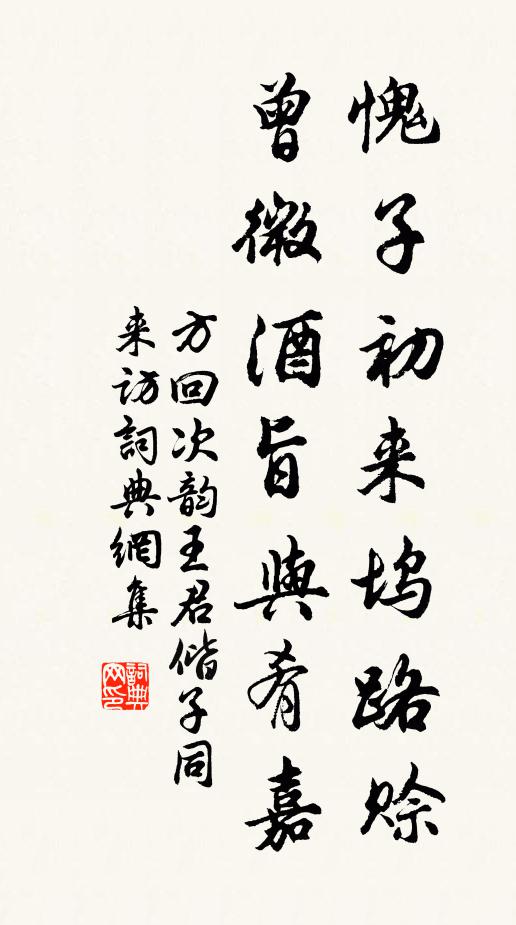 愧子初来坞路赊
曾微酒旨與肴嘉
方回次韵王君偕子同
来访詞典網集
詞典
网印